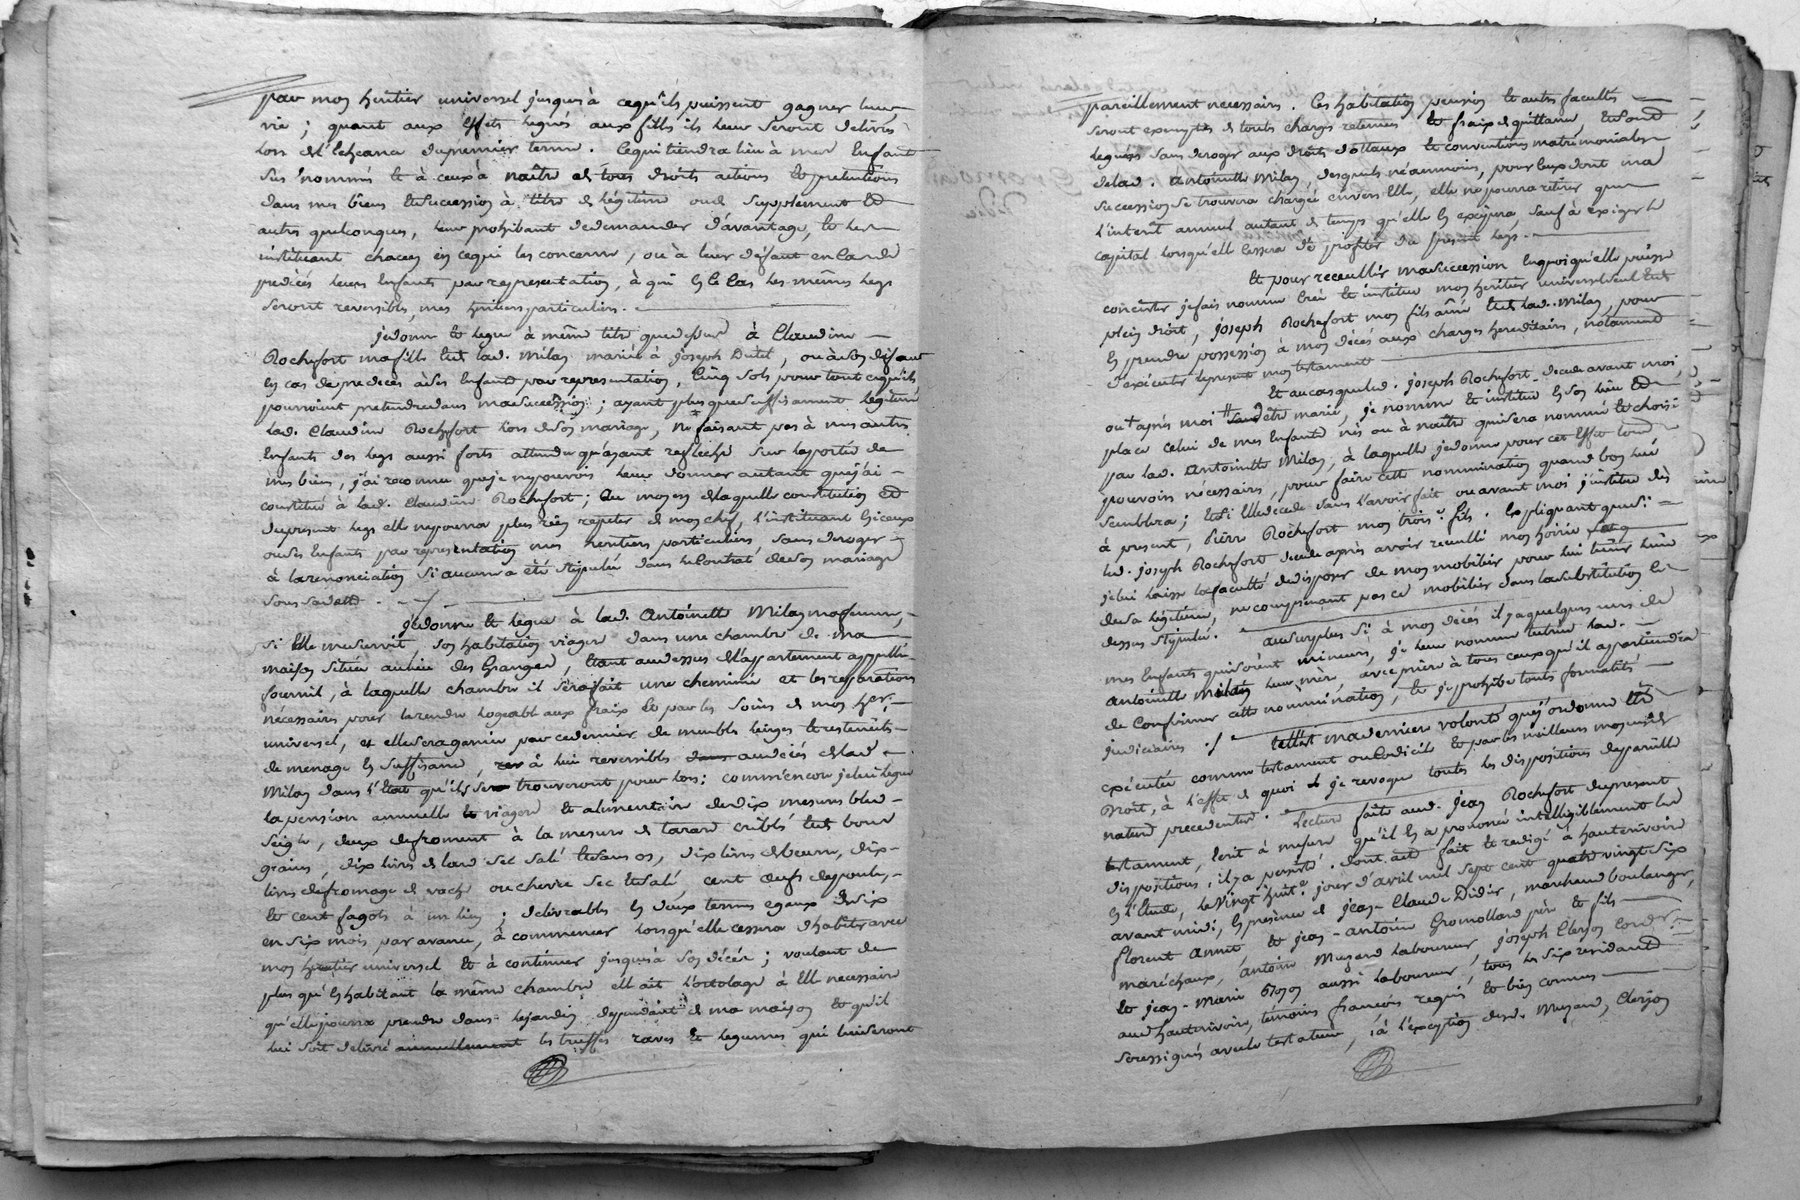 par mon heritier universel jusques à cequ'ils puissent gagner leur
vie ; quant aux Effets legués aux filles ils leur seront delivrés
lors de l'Echeance du premier terme. Cequi tiendra lieu à mesd. Enfants
sus nommés et à ceux à naître de tous droits actions et pretentions
dans mes biens et succession à titre de légitime ou de supplement et
autres quelconques, leur prohibant de demander d'avantage, et les
instituant chacun en cequi les concerne, ou à leur défaut en cas de
predécés leurs Enfants par representation, à qui En ce cas les mêmes legs
seront reversibles, mes heritiers particuliers.
je donne et legue à même titre que dessus à Claudine
Rochefort ma fille et de lad. Milan mariée à joseph Dutel, ou à son defaut
En cas de predecés à ses Enfants par representation, Cinq sols pour tout cequ'ils
pourroient pretendre dans ma succession ; ayant plus que suffisament légitimé
lad. Claudine Rochefort lors de son mariage, ne faisant pas à mes autres
Enfants des legs aussi forts attendu qu'ayant reflechi sur la portée de
mes biens, j'ai reconnu que je ne pourrois leur donner autant que j'ai
constitué à lad. Claudine Rochefort ; au moyen de laquelle constitution et
du present legs elle ne pourra plus rien repeter de mon chef, l'instituant En iceux
ou ses Enfants par representation mes heritiers particuliers sans deroger
à la renonciation si aucune a été stipulée dans le Contrat de son mariage
sous sa datte.
je donne et legue à lad. Antoinette Milan ma femme,
si Elle me survit, son habitation viagere dans une chambre de ma
maison située au lieu des Granges, Etant au dessus de l'appartement appellé
fournil, à laquelle chambre il sera fait une cheminée et les reparations
nécessaires pour la rendre logeable aux fraix et par les soins de mon her.
universel, et elle sera garnie par ce dernier de meubles linges et ustensiles
de menage En suffisance, à lui reversibles au décés de lad.
Milan dans l'Etat qu'ils se trouveront pour lors ; comm'encore je lui legue
la pension annuelle viagere et alimentaire de dix mesures bled
seigle, deux de froment à la mesure de tarare criblé et de bons
grains, dix livres de lard sec salé et sans os, dix livres de beurre, dix
livres de fromage de vache ou chevre sec et salé, cent œufs de poules,
et cent fagots à un lien ; delivrables En deux termes egaux de six
en six mois, par avance, à commencer lorsqu'elle cessera d'habiter avec
mon heritier universel et à continuer jusqu'à son décés ; voulant de
plus qu'En habitant la même chambre elle ait l'ortolage à Elle necessaire
qu'elle pourra prendre dans le jardin dependant de ma maison et qu'il
lui soit delivré annuellement les truffes raves et legumes qui lui seront
pareillement necessaires. Ces habitation pension et autres facultés
seront exemptes de toutes charges retenues et fraix de quittance, et sont
leguées sans deroger aux droits dottaux et conventions matrimoniales
de lad. Antoinette Milan, desquels néanmoins, pour ceux dont ma
succession se trouvera chargée envers Elle, elle ne pourra retirer que
l'interêt annuel autant de temps qu'elle En exigera sauf à exiger le
capital lorsqu'elle cessera de profiter du present legs.
Et pour receuillir ma succession En quoi qu'elle puisse
concister je fais nomme Crée et institue mon heritier universel seul et de
plein droit, joseph Rochefort mon fils aîné et de lad. Milan, pour
En prendre possession à mon décés aux charges hereditaires, notament
d'exécuter le present mon testament
Et au cas que led. joseph Rochefort decede avant moi,
ou après moi sans être marié, je nomme et institue En son lieu et
place celui de mes Enfants nés ou à naître qui sera nommé et choisi
par lad. Antoinette Milan, à laquelle je donne pour cet Effet tous
pouvoirs nécessaires, pour faire cette nommination quand bon lui
semblera ; Et si Elle decede sans l'avoir fait ou avant moi j'institue dès
à present, Pierre Rochefort mon trois.e fils. Expliquant que si
led. joseph Rochefort decede après avoir receuilli mon hoirie
je lui laisse la faculté de disposer de mon mobilier pour lui tenir lieu
de sa légitime, ne comprenant pas ce mobilier dans la substitution ci
dessus stipulée. au surplus si à mon décés il y a quelques uns de
mes Enfants qui soient mineurs, je leur nomme tutrice lad.
Antoinette Milan leur mère avec priere à tous ceux qu'il appartiendra
de Confirmer cette nommination, et je prohibe toutes formalités
judiciaires. telle Est ma derniere volonté que j'ordonne Etre
exécutée comme testament ou Codicile et par les meilleurs moyens de
Droit, à l'effet de quoi je revoque toutes les dispositions de pareille
nature precedentes. Lecture faite aud. jean Rochefort du present
testament, Ecrit à mesure qu'il En a prononcé intelligiblement les
dispositions, il y a persisté. dont acte fait et redigé à hauterivoire
En l'Etude, le Vingt huit.e jour d'avril mil sept cent quatre vingt six
avant midi, En presence de jean-Claude Didier, marchand boulanger,
florent annet et jean-antoine Gromollard père et fils
maréchaux, Antoine Muzard laboureur, joseph Clerjon
et jean-Marie aussi laboureur, tous les six residants
aud. hauterivoire, temoins francois requis et bien connus
soussignés avec le testateur, à l'exception desd. Muzard, Clerjon